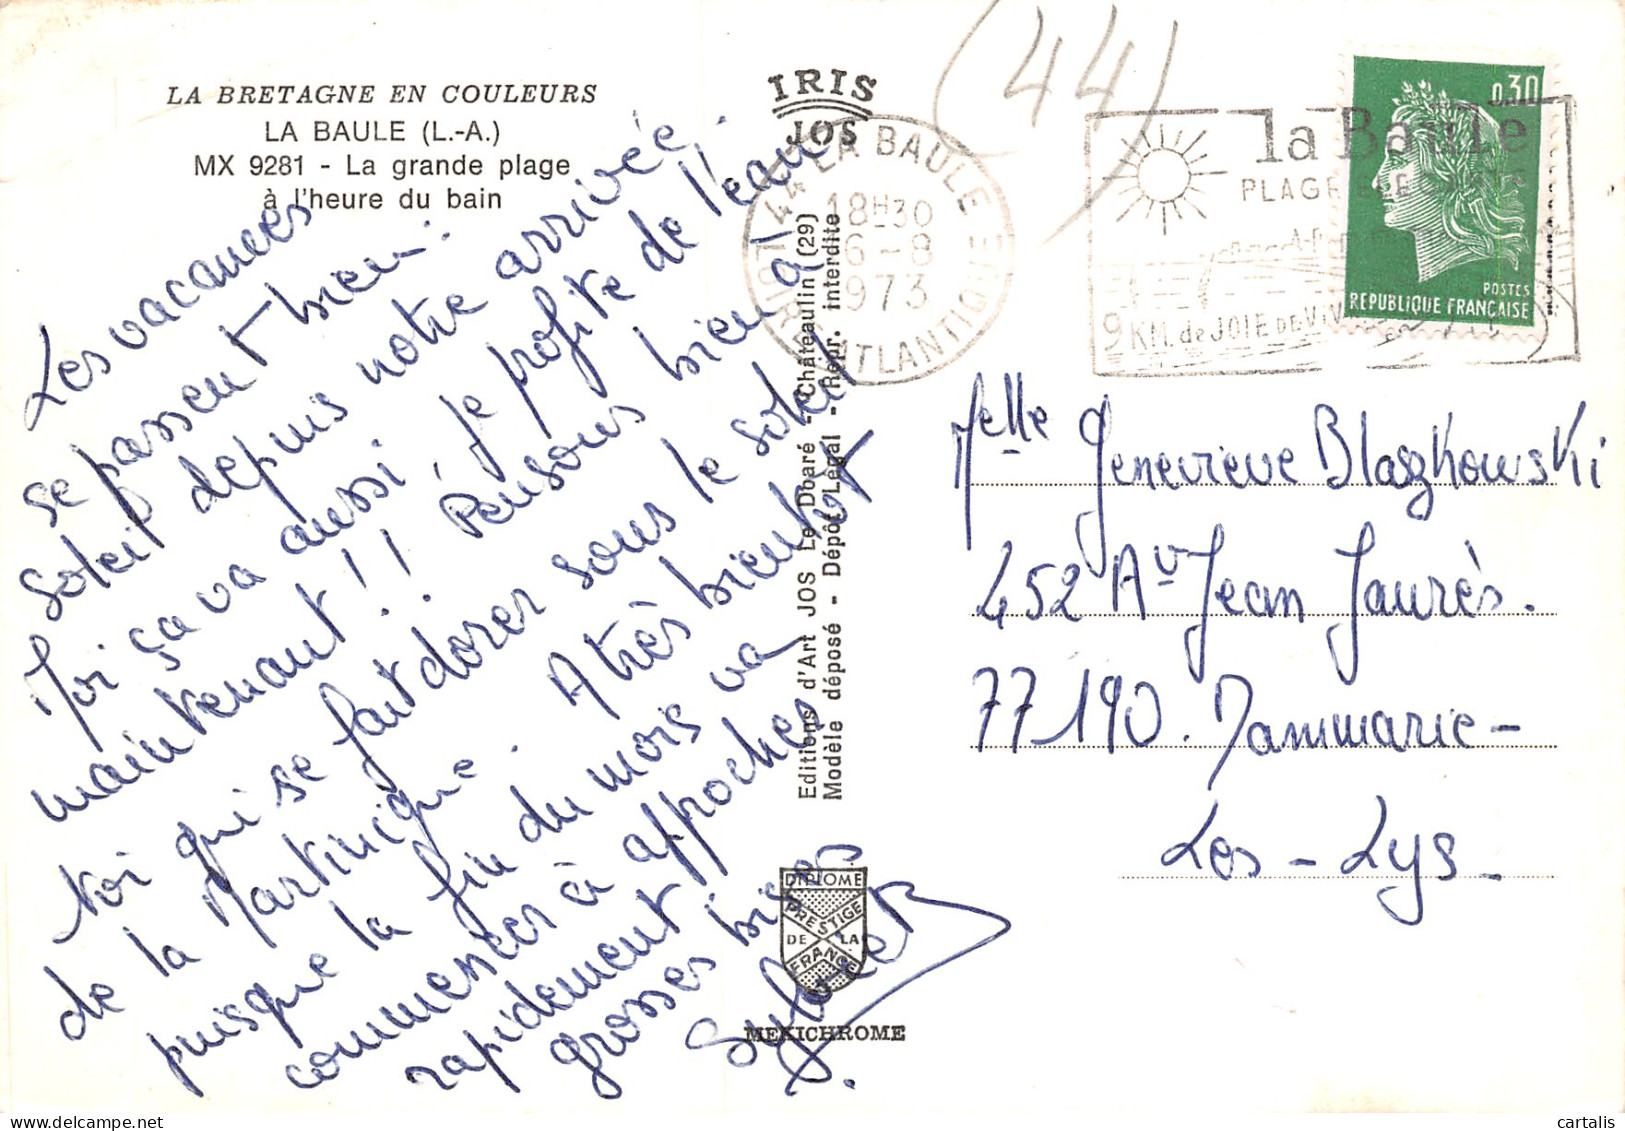 LA BRETAGNE EN COULEURS
LA BAULE (L.-A.)
MX 9281 - La grande plage
à l'heure du bain
Les vacances
se passent bien.
Soleil depuis notre arrivée.
Moi ça va aussi, je profite de l'eau
maintenant !! Pensons bien à
toi qui se fait dorer sous le soleil
de la Martinique. A très bientôt
puisque la fin du mois va
commencer à approcher
rapidement
grosses bises
IRIS
JOS
Editions d'Art JOS Le Doaré - Châteaulin (29)
Modèle déposé - Dépôt Légal - Repr. interdite
DIPLOME
PRESTIGE
DE LA
FRANCE
MEXICHROME
(44)
44 LA BAULE
18H30
6-8
1973
LOIRE ATLANTIQUE
la Baule
9 KM. de JOIE DE VIV
0,30
POSTES
REPUBLIQUE FRANÇAISE
Melle Geneviève Blaszkowski
452 Av Jean Jaurès.
77190. Dammarie-
Les-Lys-
cartalis